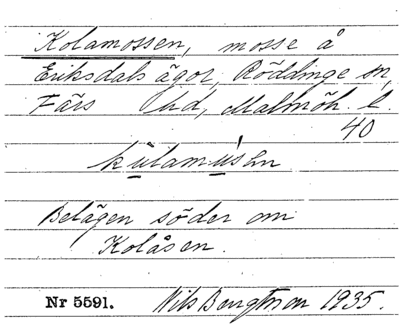 Kolamossen, mosse å
Eriksdals ägor, Röddinge sn,
Färs hd, Malmöh. l.
40
kùlamúsən
Belägen söder om
Kolåsen.
Nr 5591. Nils Bengtson 1935.